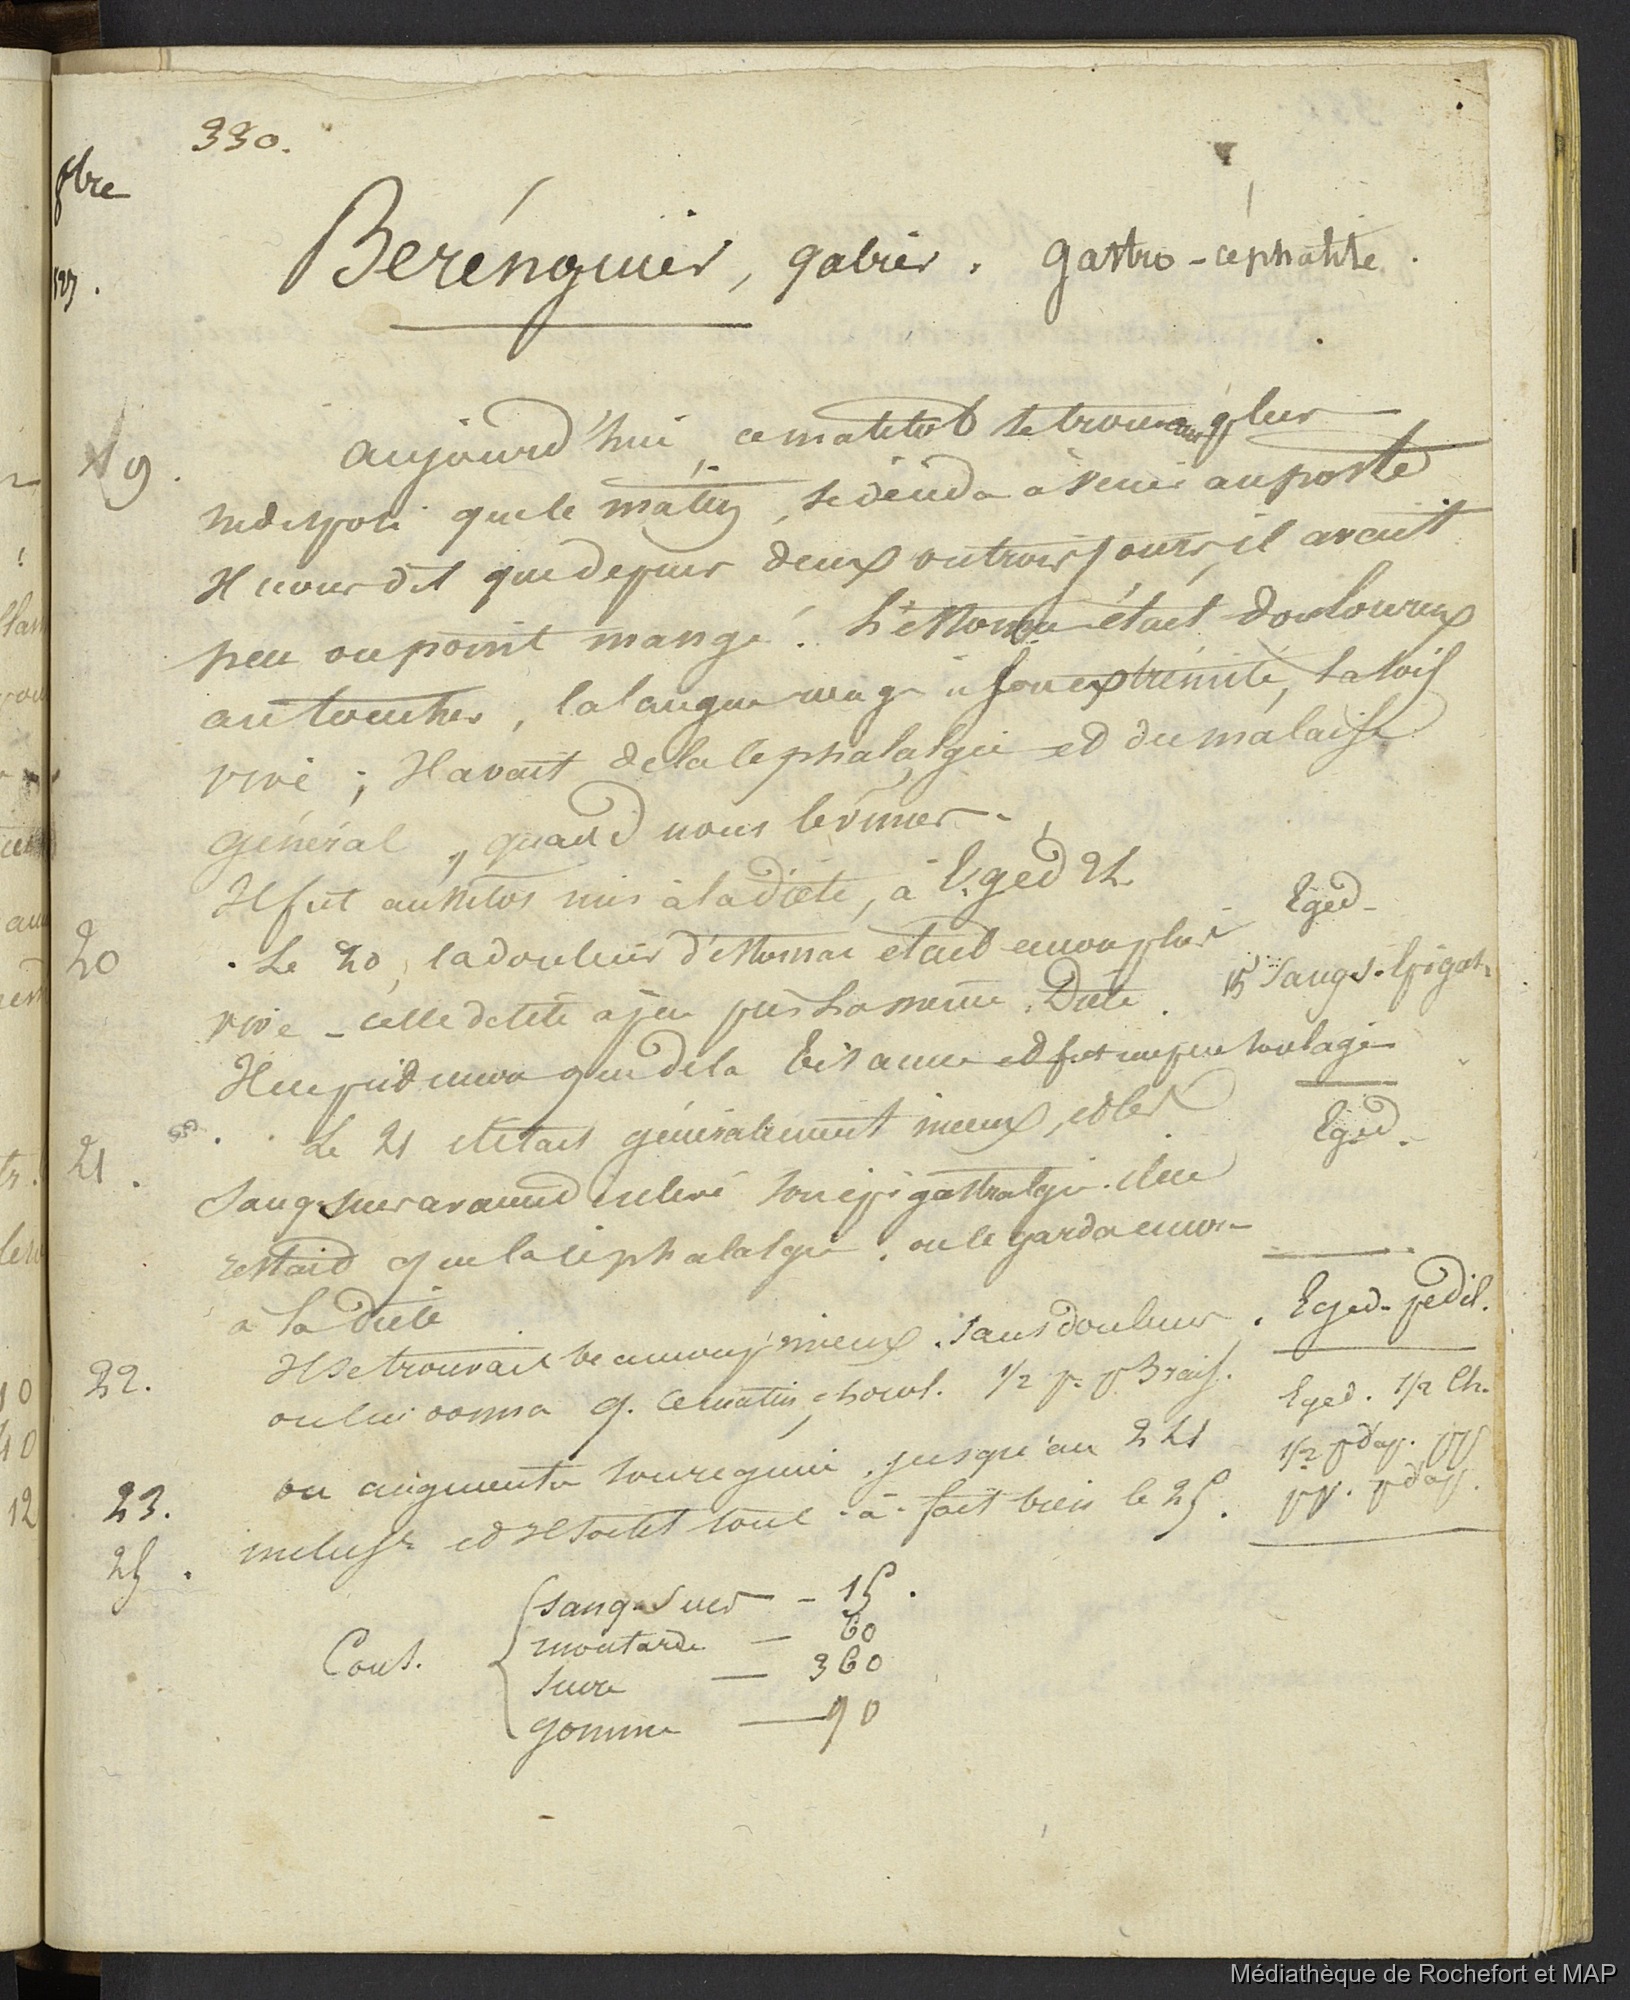 330.
8bre
Berénguier, gabier. gastro-céphalite.
19.
aujourd'hui, ce matelot se trouvant plus
indisposé que le matin, se décida à venir au poste
Il nous dit que depuis deux ou trois jours, il avait
peu ou point mangé. L'estomac était douloureux
au toucher, la langue rouge à son extrémité, la soif
vive; Il avait de la céphalalgie et du malaise
général, quand nous le vîmes.
Il fut aussitot mis à la diète, à l'Eged 2 L.
Eged.
20
Le 20, la douleur d'estomac était encore plus
vive - celle de tête à peu près la même. Diète.
15 Sangs. Epigast.
Il ne prit encore que de la tisanne et fut un peu soulagé
21.
Le 21 il était généralement mieux, et les
Eged.
Sangsues avaient enlevé son épigastralgie. il ne
restait que la céphalalgie. on le garda encore
à la diète
Eged. pedil.
22.
Il se trouvait beaucoup mieux. sans douleur.
on lui donna q. ce matin, chocol. 1/2 p. p. Brais.
Eged. 1/2 Ch.
1/2 pdap. pp
23.
on augmenta son régime, jusqu'au 24
pp. pdap.
25.
inclus. et Il sortit tout-à-fait bien le 25.
Cons.
sangsues - 15.
moutarde - 60
sucre - 360
gomme - 90
Médiathèque de Rochefort et MAP